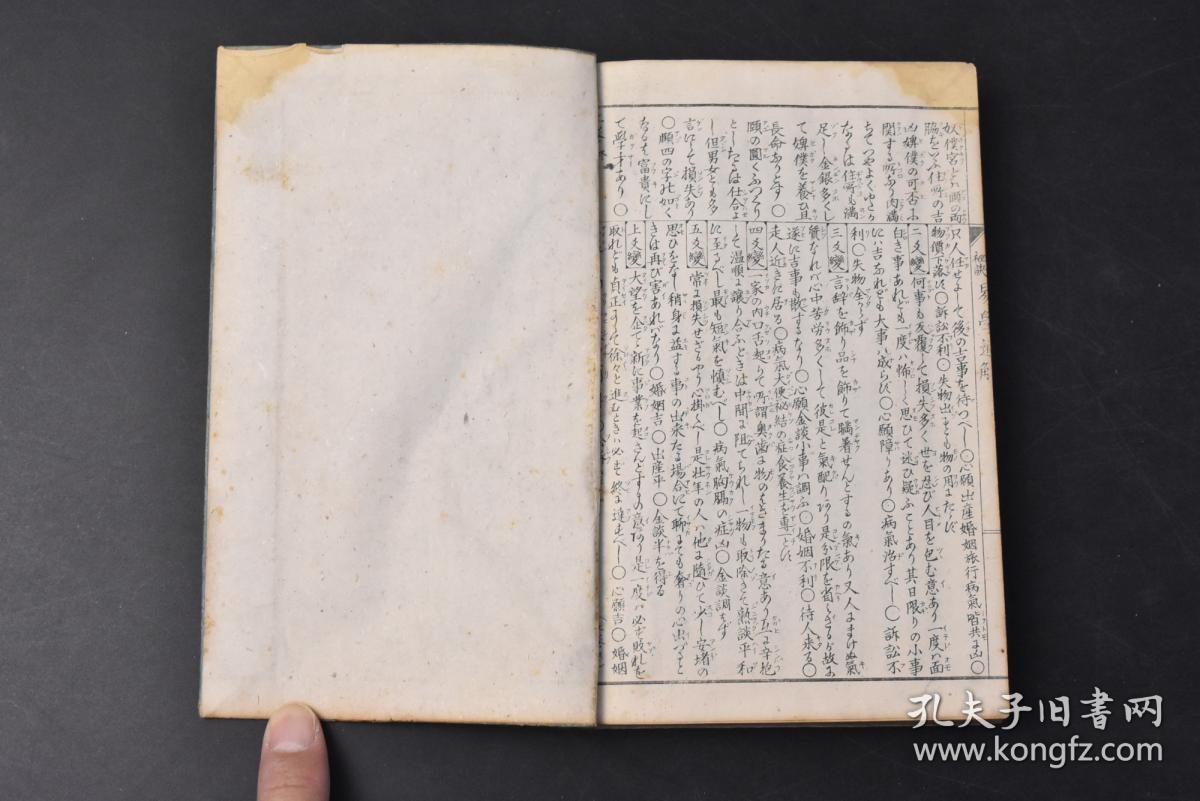 奴僕宮とハ頤の両
脇をいふ住所の吉
凶婢僕の可否に
関する所なり肉満
ちてつやよくゆたか
なるは住所も満
足し金銀多くし
て婢僕を養ひ且
長命なりとす〇
頤の圓くふつくり
としたるは仕合よ
し但男女とも多
言にして損失あり
〇頤四の字の如く
なるは富貴にし
て學才あり〇
只人任せよして後の吉事を待つべし〇心願出産婚姻旅行病氣皆共に凶〇
物價下落す〇訴訟不利〇失物出るも物の用にたゝず
二爻變 何事も反覆して損失多く世を忍び人目を包む意あり一度ハ面
白き事あれども一度ハ怖しく思ひて迷ひ疑ふことあり其日限りの小事
にハ吉なれども大事ハ成らず〇心願障りあり〇病氣治すべし〇訴訟不
利〇失物全からず
三爻變 言辞を飾り品を飾りて瞞着せんとするの氣あり又人にまけぬ氣
質なれバ心中苦労多くして彼是と氣配りあり是分限を省ざるが故に
遂に吉事も散するなり〇心願金談小事ハ調ふ〇婚姻不利〇待人来る〇
走人近きに居る〇病氣大便秘結の症食養生を専一とす
四爻變 一家の内口舌起りて所謂奥歯に物のはさまりたる意あり互に辛抱
して温順に譲り合ふときは中間に阻てられし一物も取除きて熟談平和
に至るべし最も短氣を慎むべし〇病氣胸膈の症凶〇金談調はず
五爻變 常に損失せざるやう心掛くべし是壮年の人ハ他に随ひて少し安堵の
思ひをなし稍身に益する事の出来たる場合にて聊にても奢りの心出づると
きは再び害あれバなり〇婚姻吉〇出産平〇金談半を得る
上爻變 大望を企て新に事業を起さんとするの意あり是一度ハ必ず敗れを
取れども貞正にして徐々と進むときハ必ず終に達すべし〇心願吉〇婚姻
秘訣 易學通解
孔夫子旧書网
www.kongfz.com